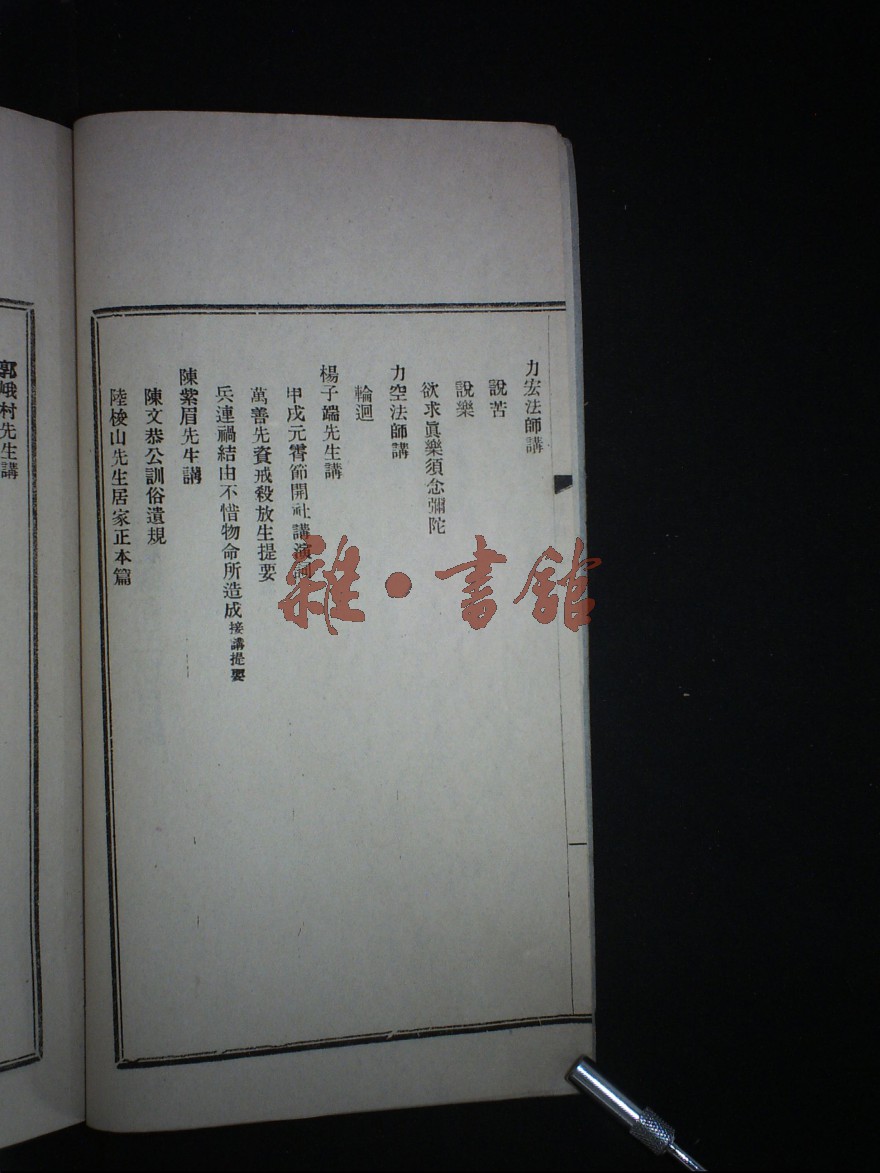 力宏法師講
說苦
說樂
欲求眞樂須念彌陀
力空法師講
輪迴
楊子端先生講
甲戌元宵節開社講演詞
萬善先資戒殺放生提要
兵連禍結由不惜物命所造成接講提要
陳紫眉先生講
陳文恭公訓俗遺規
陸梭山先生居家正本篇
郭峨村先生講
雜·書館